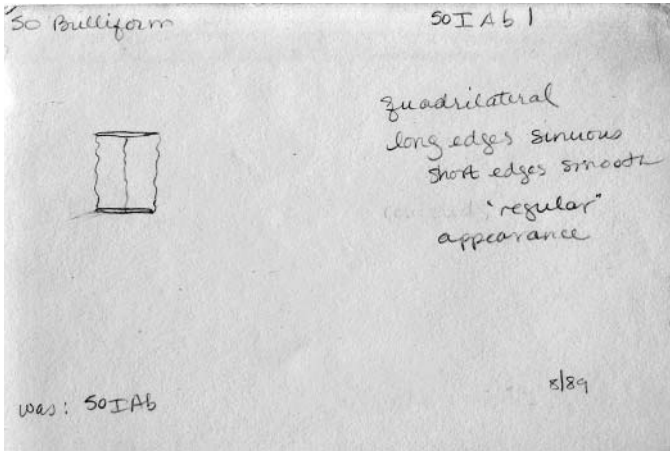 50 Bulliform
50IAb1
quadrilateral
long edges sinuous
short edges smooth
"regular"
appearance
was: 50IAb
8/89